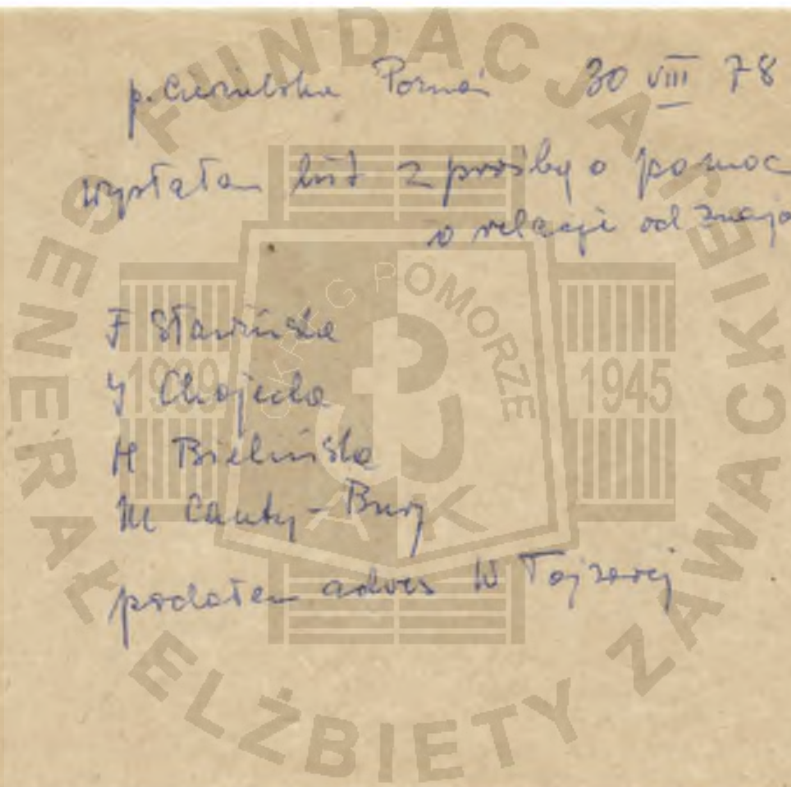 p. Poznań 30 VIII 78
wysłałam list z prośbą o pomoc
o relacje od
F Sławińska
J Chojecka
H Bielińska
M Canty-Bury
podałam adres W
FUNDACJA GENERAŁ ELŻBIETY ZAWACKIEJ
OKRĘG POMORZE
1939 1945
AK